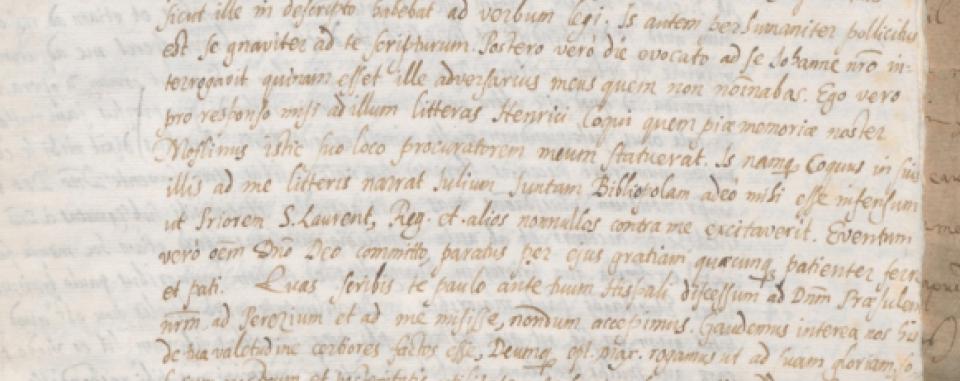 ille in descripto habebat ad verbum legi. Is autem perhumaniter pollicitus
est se gnaviter ad te scripturum. Postero verò die evocato ad se Johanne nr̃o in-
terrogavit quinam esset ille adversarius meus quem non nominabas. Ego vero
pro responso misi ad illum litteras Henrici Coqui quem piæ memoriæ noster
Moflinus istic suo loco procuratorem meum statuerat. Is namq Coquus in suis
illis ad me litteris narrat Julium Juntam Bibliopolam adeo mihi esse infensum
ut Priorem S. Laurent, Reg. et alios nonnullos contra me excitaverit. Eventum
vero oẽm Dño Deo committo, paratus per ejus gratiam quæcunq patienter ferre
et pati. Quas scribis te paulo ante tuum Hispali discessum ad Dnm Præsulem
nrm ad Perezium et ad me misisse, nondum accepimus. Gaudemus interea nos
de tua valetudine certiores factos esse, Deumq opt. max. rogamus ut ad suam gloriam,
et